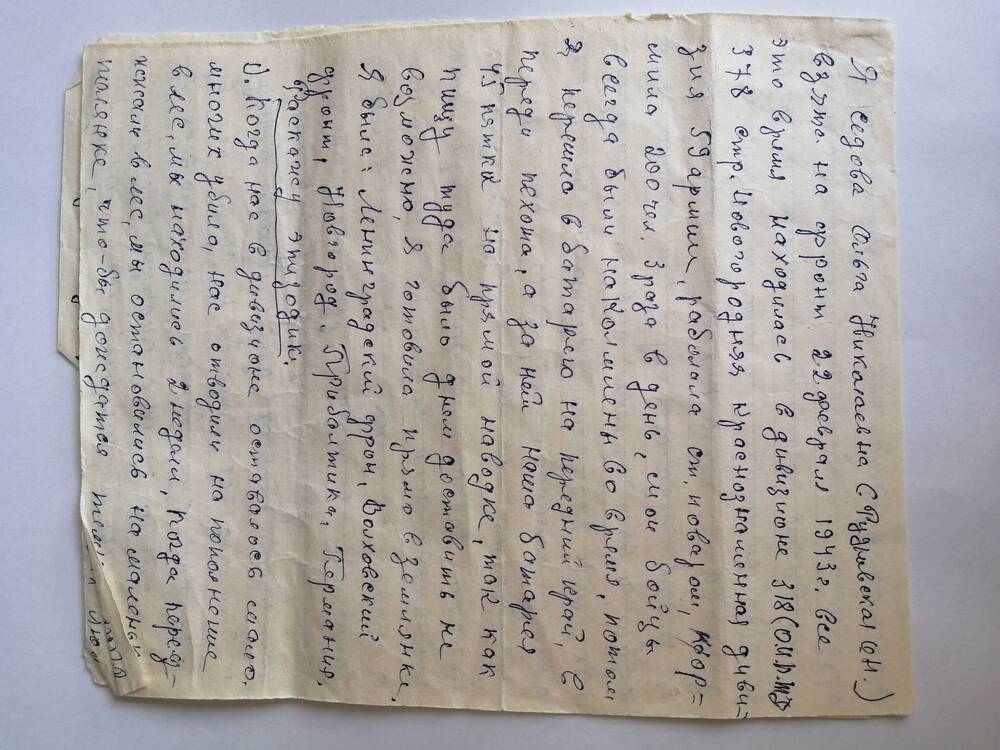 Я Седова Ольга Николаевна (Рудновская О.Н.)
взята на фронт 22 февраля 1943г. все
это время находилась в дивизионе 318 (О.И.П.Т.Д
378 стр. Новогородняя краснознаменная диви=
зия 59 армии, работала ст. поваром, кор=
мила 200 чел. 3 раза в день, мои бойцы
всегда были наколмлены во время, потом
я перешла в батарею на передний край, в
переди пехота, а за ней наша батарея
45 пятки на прямой наводке, так как
пищу туда было днем доставить не
возможно, я готовила прямо в землянке.
Я была: Ленинградский фрон, Волховский
фронт, Новгород. Прибалтика, Германия.
Раскажу эпизодик.
1). Когда нас в дивизионе оставалось мало.
многих убило, нас отводили на пополнение
в лес, мы находились 2 недели, когда переез=
жжали в лес, мы остановились на маленьк
полянке, что-бы дождатся